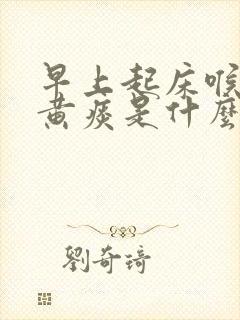 早上起床喉
黃痰是什麼
劉奇琦